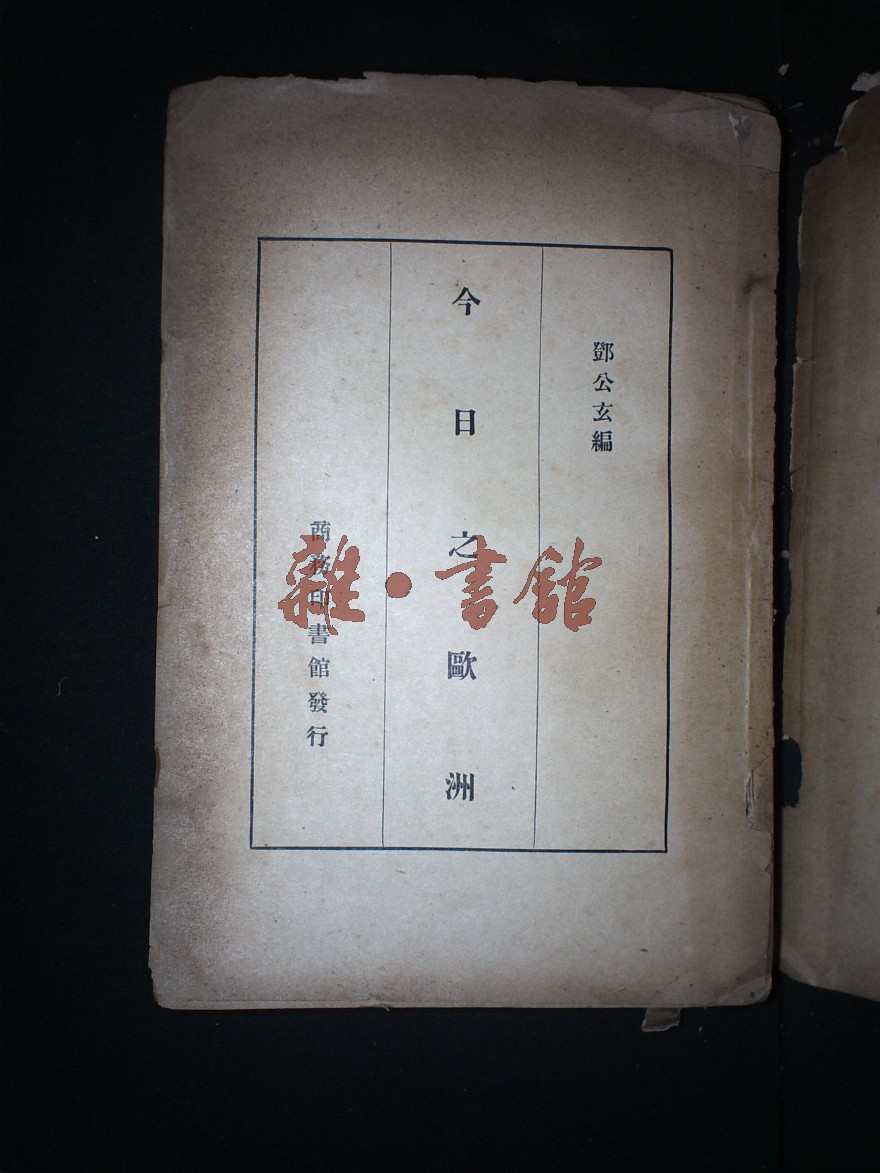 鄧公玄編
今日之歐洲
商務印書館發行
雜·書館